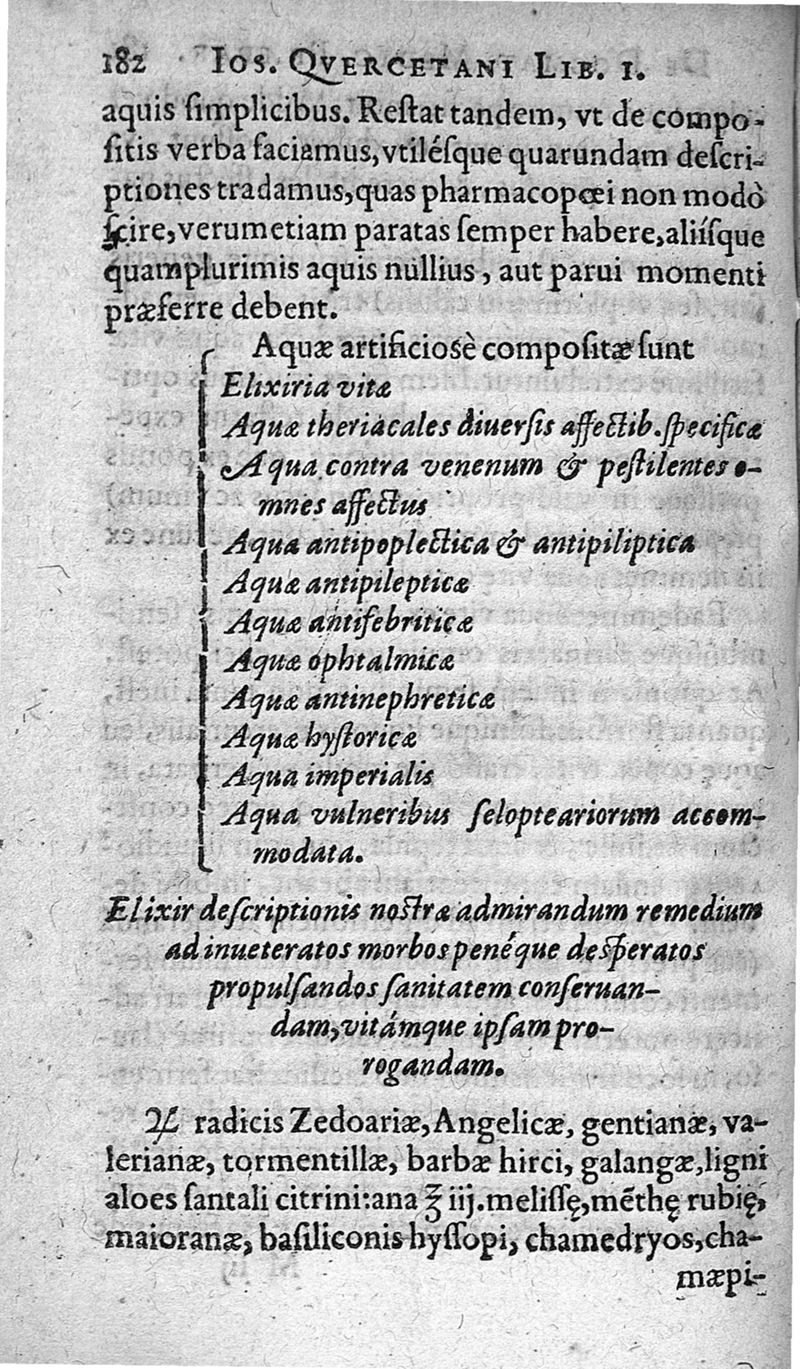 182 IOS. QVERCETANI LIB. I.
aquis ſimplicibus. Reſtat tandem, vt de compo-
ſitis verba faciamus, vtiléſque quarundam deſcri-
ptiones tradamus, quas pharmacopœi non modò
ſcire, verumetiam paratas ſemper habere, aliíſque
quamplurimis aquis nullius, aut parui momenti
præferre debent.
Aquæ artificiosè compoſitæ ſunt
Elixiria vitæ
Aquæ theriacales diuerſis affectib. ſpecificæ
Aqua contra venenum & peſtilentes o-
mnes affectus
Aqua antipoplectica & antipiliptica
Aquæ antipilepticæ
Aquæ antifebriticæ
Aquæ ophtalmicæ
Aquæ antinephreticæ
Aquæ hyſtoricæ
Aqua imperialis
Aqua vulneribus ſelopteariorum accom-
modata.
Elixir deſcriptionis noſtræ admirandum remedium
ad inueteratos morbos penéque deſperatos
propulſandos ſanitatem conſeruan-
dam, vitámque ipſam pro-
rogandam.
℞ radicis Zedoariæ, Angelicæ, gentianæ, va-
lerianæ, tormentillæ, barbæ hirci, galangæ, ligni
aloes ſantali citrini: ana ℥ iij. meliſſę, mẽthę rubię,
maioranæ, baſiliconis hyſſopi, chamedryos, cha-
mæpi-